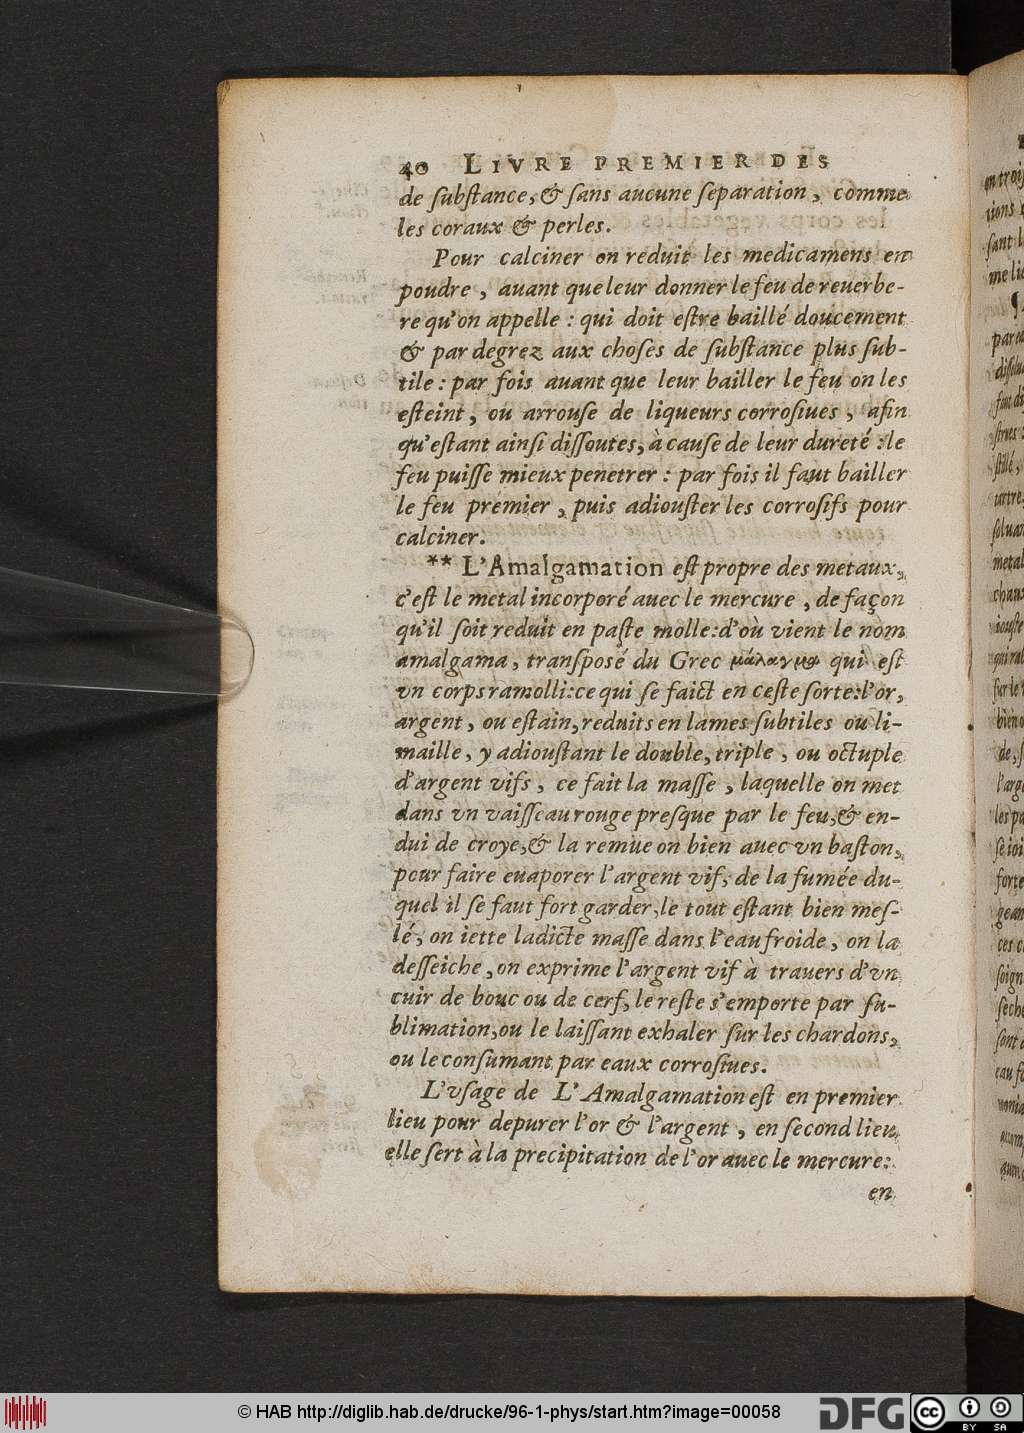 40 LIVRE PREMIER DES
de ſubſtance, & ſans aucune ſeparation, comme
les coraux & perles.
Pour calciner on reduit les medicamens en
poudre, auant que leur donner le feu de reuerbe-
re qu'on appelle: qui doit eſtre baillé doucement
& par degrez aux choſes de ſubſtance plus ſub-
tile: par fois auant que leur bailler le feu on les
eſteint, ou arrouſe de liqueurs corroſiues, afin
qu'eſtant ainſi diſſoutes, à cauſe de leur dureté: le
feu puiſſe mieux penetrer: par fois il faut bailler
le feu premier, puis adiouſter les corroſifs pour
calciner.
** L'Amalgamation eſt propre des metaux,
c'eſt le metal incorporé auec le mercure, de façon
qu'il ſoit reduit en paſte molle: d'où vient le nom
amalgama, tranſposé du Grec μάλαγμα qui eſt
vn corps ramolli: ce qui ſe faict en ceſte ſorte: l'or,
argent, ou eſtain, reduits en lames ſubtiles ou li-
maille, y adiouſtant le double, triple, ou octuple
d'argent vifs, ce fait la maſſe, laquelle on met
dans vn vaiſſeau rouge preſque par le feu, & en-
dui de croye, & la remue on bien auec vn baſton,
pour faire euaporer l'argent vif, de la fumée du-
quel il ſe faut fort garder, le tout eſtant bien meſ-
lé, on iette ladicte maſſe dans l'eau froide, on la
deſſeiche, on exprime l'argent vif à trauers d'vn
cuir de bouc ou de cerf, le reſte s'emporte par ſu-
blimation, ou le laiſſant exhaler ſur les chardons,
ou le conſumant par eaux corroſiues.
L'vſage de L'Amalgamation eſt en premier
lieu pour depurer l'or & l'argent, en ſecond lieu
elle ſert à la precipitation de l'or auec le mercure:
en
© HAB http://diglib.hab.de/drucke/96-1-phys/start.htm?image=00058
DFG
cc
BY SA